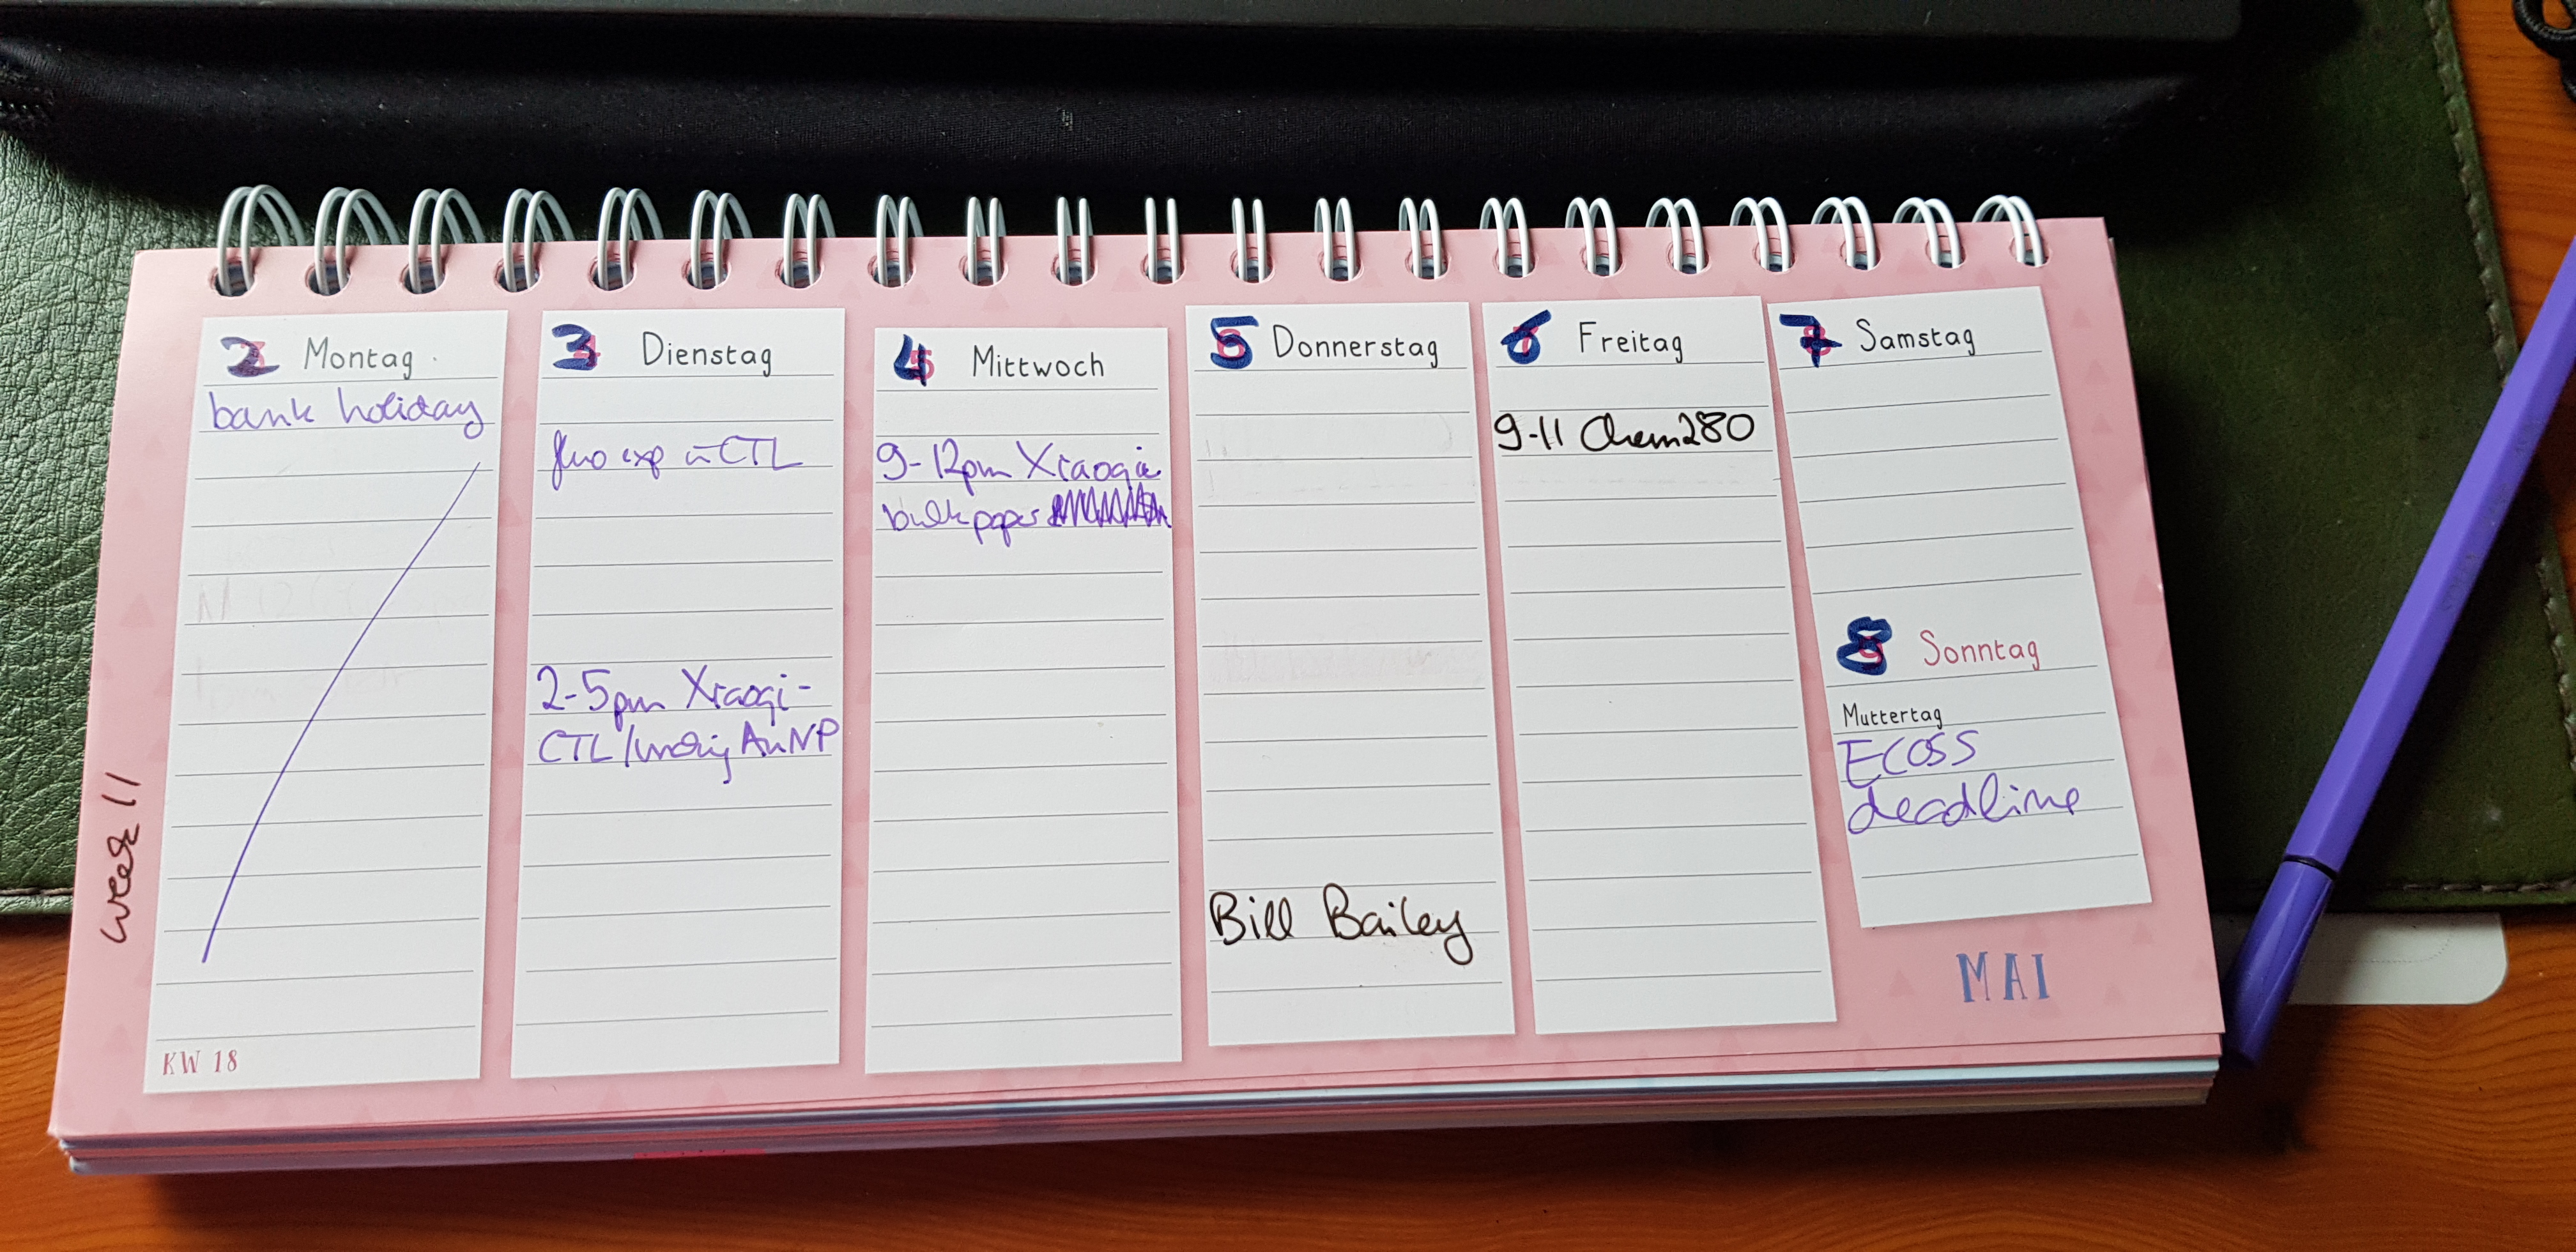 2 Montag
bank holiday
KW 18
week 11
3 Dienstag
fluo exp in CTL
2-5pm Xiaoqi -
CTL / AuNP
4 Mittwoch
9-12pm
bulk paper
5 Donnerstag
Bill Bailey
6 Freitag
9-11 Chem280
7 Samstag
8 Sonntag
Muttertag
ECOSS
deadline
MAI